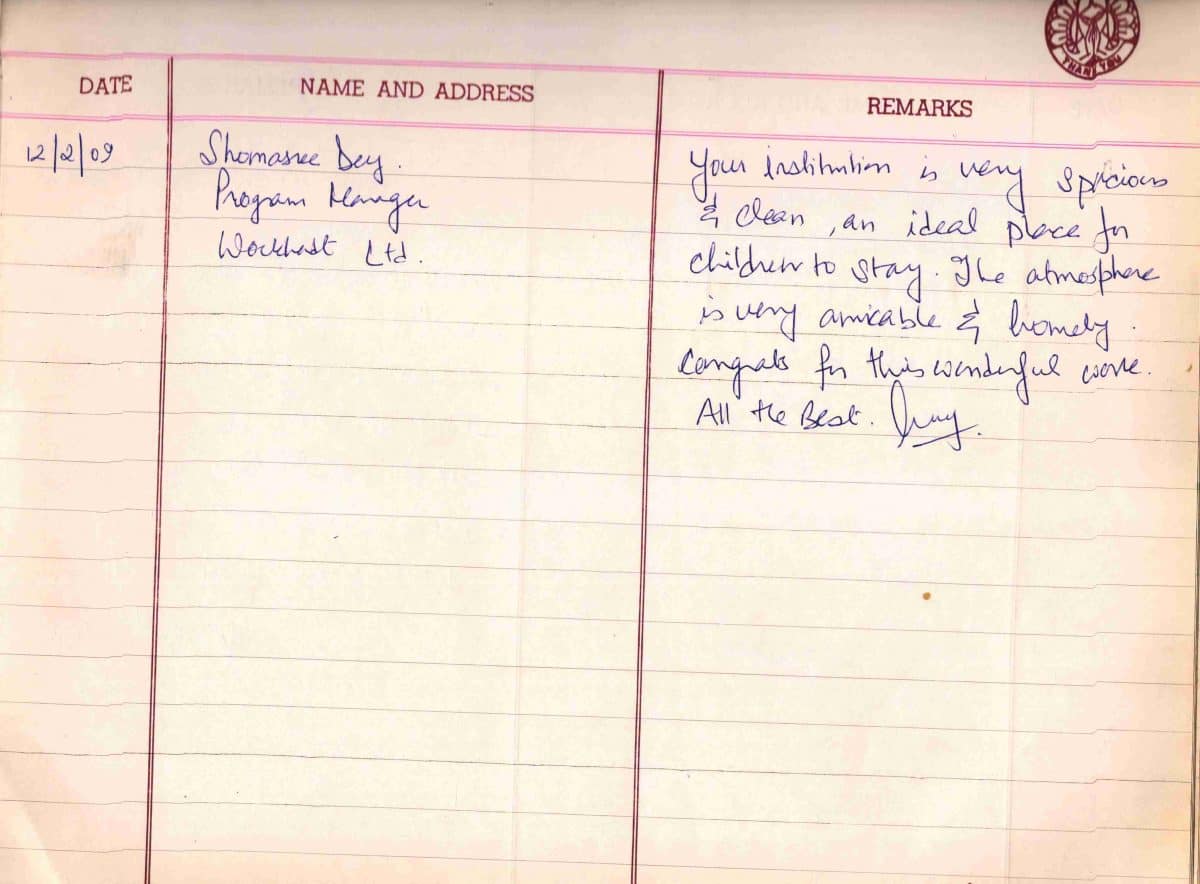 THANK YOU
DATE
NAME AND ADDRESS
REMARKS
12/2/09
Shomasree Dey.
Program Manager
Wockhardt Ltd.
Your institution is very spicious
& clean, an ideal place for
children to stay. The atmosphere
is very amicable & homely.
Congrats for this wonderful work.
All the Best.